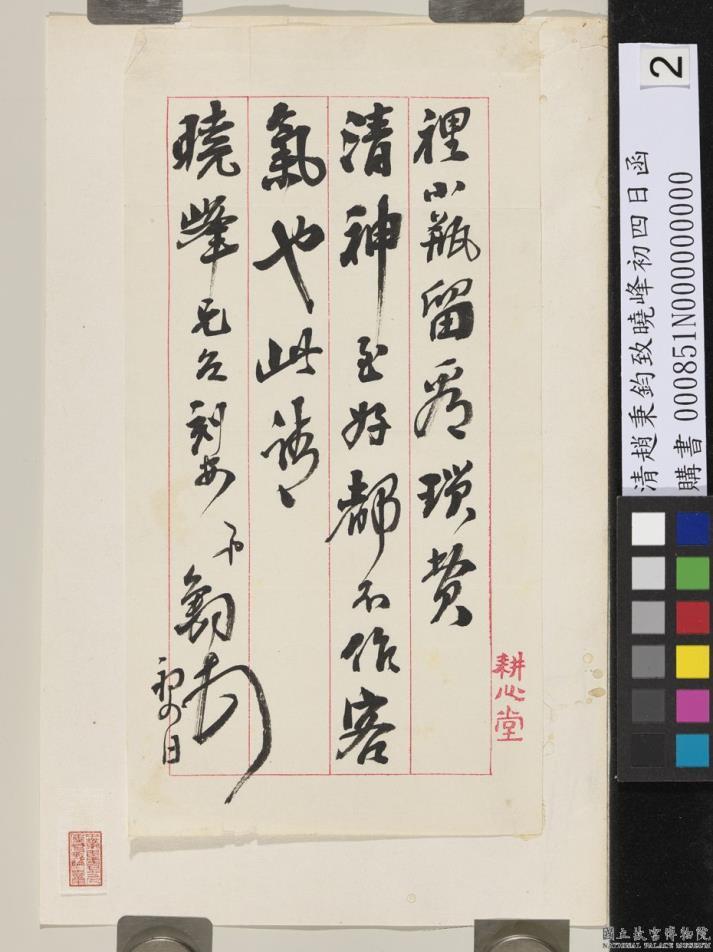 裡小瓶留看瑣費
清神至好都不作客
氣也此請
曉峰兄公刻安 弟鈞頓
初四日
耕心堂
清趙秉鈞致曉峰初四日函
購書 000851N000000000
2
國立故宮博物院
NATIONAL PALACE MUSEUM